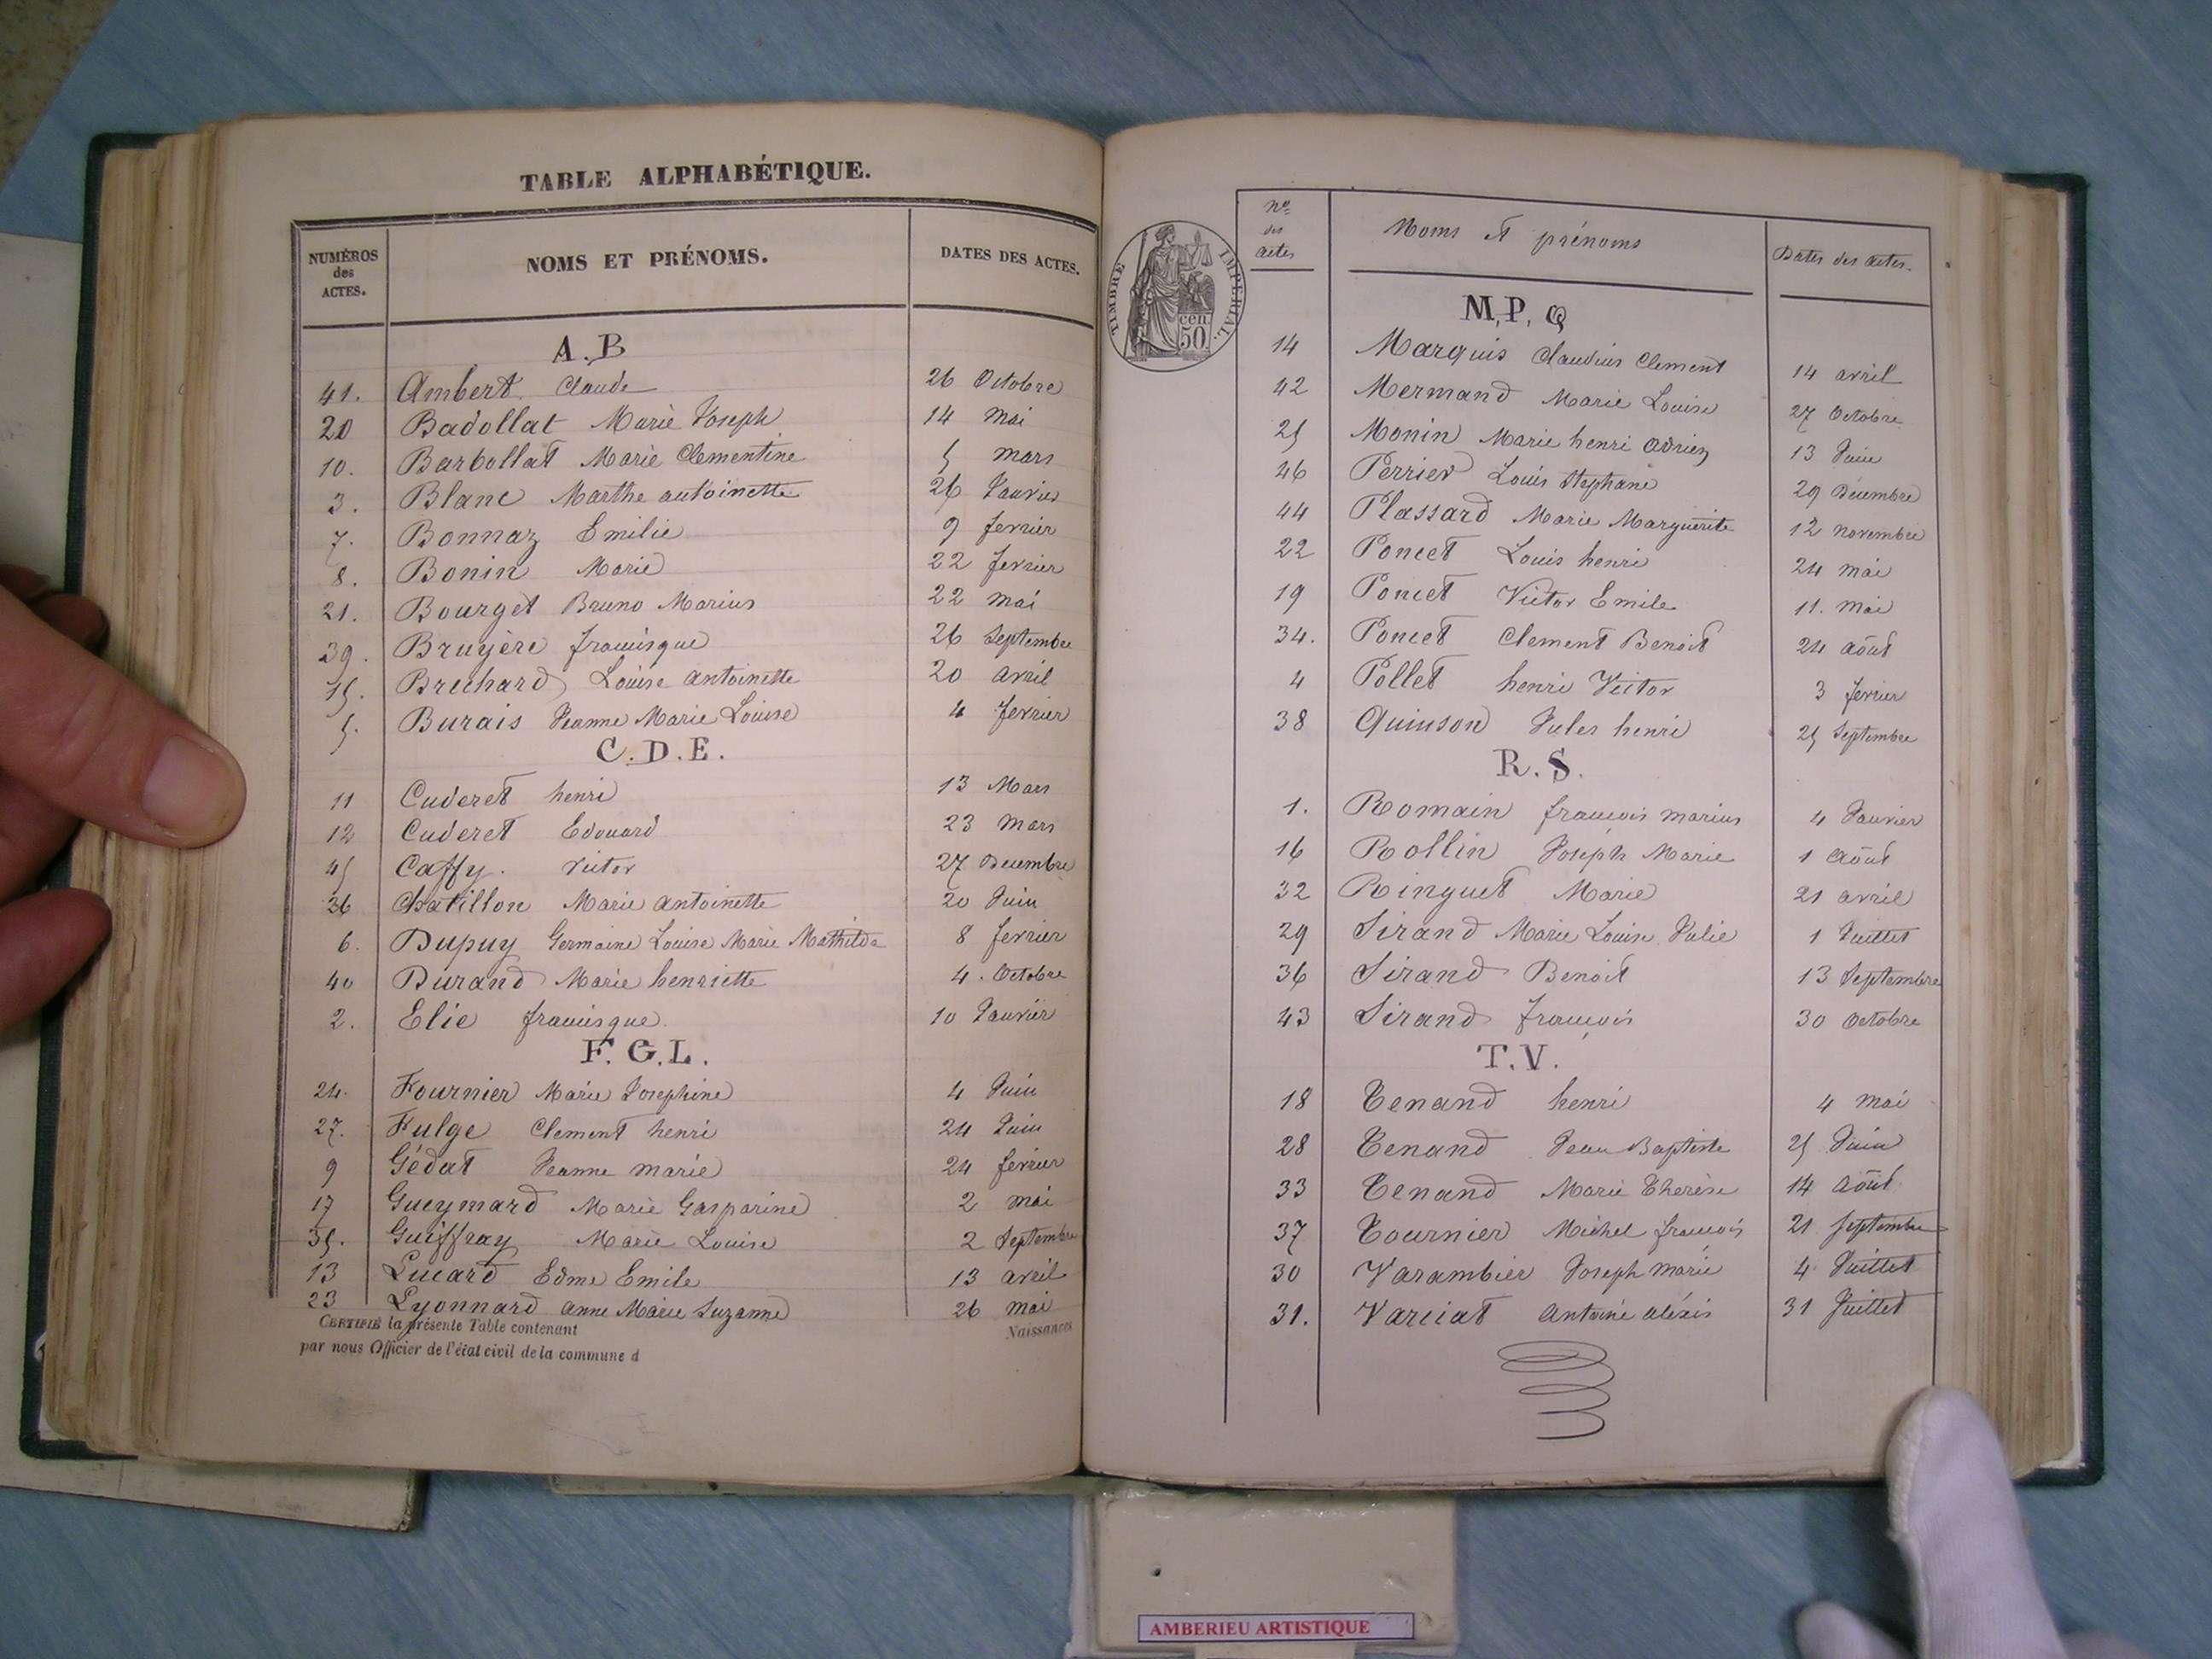 TABLE ALPHABÉTIQUE.
NUMÉROS des ACTES. NOMS ET PRÉNOMS. DATES DES ACTES.
A. B
41. Ambert Claude 26 Octobre
20 Badollat Marie Joseph 14 mai
10. Barbollat Marie Clementine 5 mars
3. Blanc Marthe antoinette 26 Janvier
7. Bonnaz Emilie 9 fevrier
8. Bonin Marie 22 fevrier
21. Bourget Bruno Marius 22 mai
39. Bruyère francisque 26 Septembre
15. Brechard Louise antoinette 20 avril
5. Burais Jeanne Marie Louise 4 fevrier
C. D. E.
11 Cuderet henri 13 Mars
12 Cuderet Edouard 23 mars
45 Caffy. victor 27 Decembre
26 Chatillon Marie antoinette 20 Juin
6. Dupuy Germaine Louise Marie Mathilde 8 fevrier
40 Durand Marie henriette 4. Octobre
2. Elie francisque 10 Janvier
F. G. L.
24. Fournier Marie Josephine 4 Juin
27. Fulge Clement henri 24 Juin
9 Gédat Jeanne marie 24 fevrier
17 Gueymard Marie Gasparine 2 mai
35. Guiffray Marie Louise 2 Septembre
13 Lucard Edme Emile 13 avril
23 Lyonnard anne Marie Suzanne 26 mai
CERTIFIÉ la présente Table contenant Naissances
par nous Officier de l'état civil de la commune d
TIMBRE IMPERIAL.
50 cen.
Nos des actes Noms et prénoms Dates des actes.
M, P, Q
14 Marquis Claudius Clement 14 avril
42 Mermand Marie Louise 27 Octobre
25 Monin Marie henri adrien 13 Juin
46 Perrier Louis Stephane 29 Decembre
44 Plassard Marie Marguerite 12 novembre
22 Poncet Louis henri 24 mai
19 Poncet Victor Emile 11. mai
34. Poncet Clement Benoit 24 août
4 Pollet henri Victor 3 fevrier
38 Quinson Jules henri 25 Septembre
R. S.
1. Romain françois marius 4 Janvier
16 Rollin Joseph Marie 1 août
32 Ringuet Marie 21 avril
29 Sirand Marie Louise Julie 1 Juillet
36 Sirand Benoit 13 Septembre
43 Sirand françois 30 octobre
T. V.
18 Tenand henri 4 mai
28 Tenand Jean Baptiste 25 Juin
33 Tenand Marie Therèse 14 août
37 Tournier Michel françois 21 septembre
30 Varambier Joseph marie 4 Juillet
31. Varciat Antoine alexis 31 Juillet
AMBERIEU ARTISTIQUE